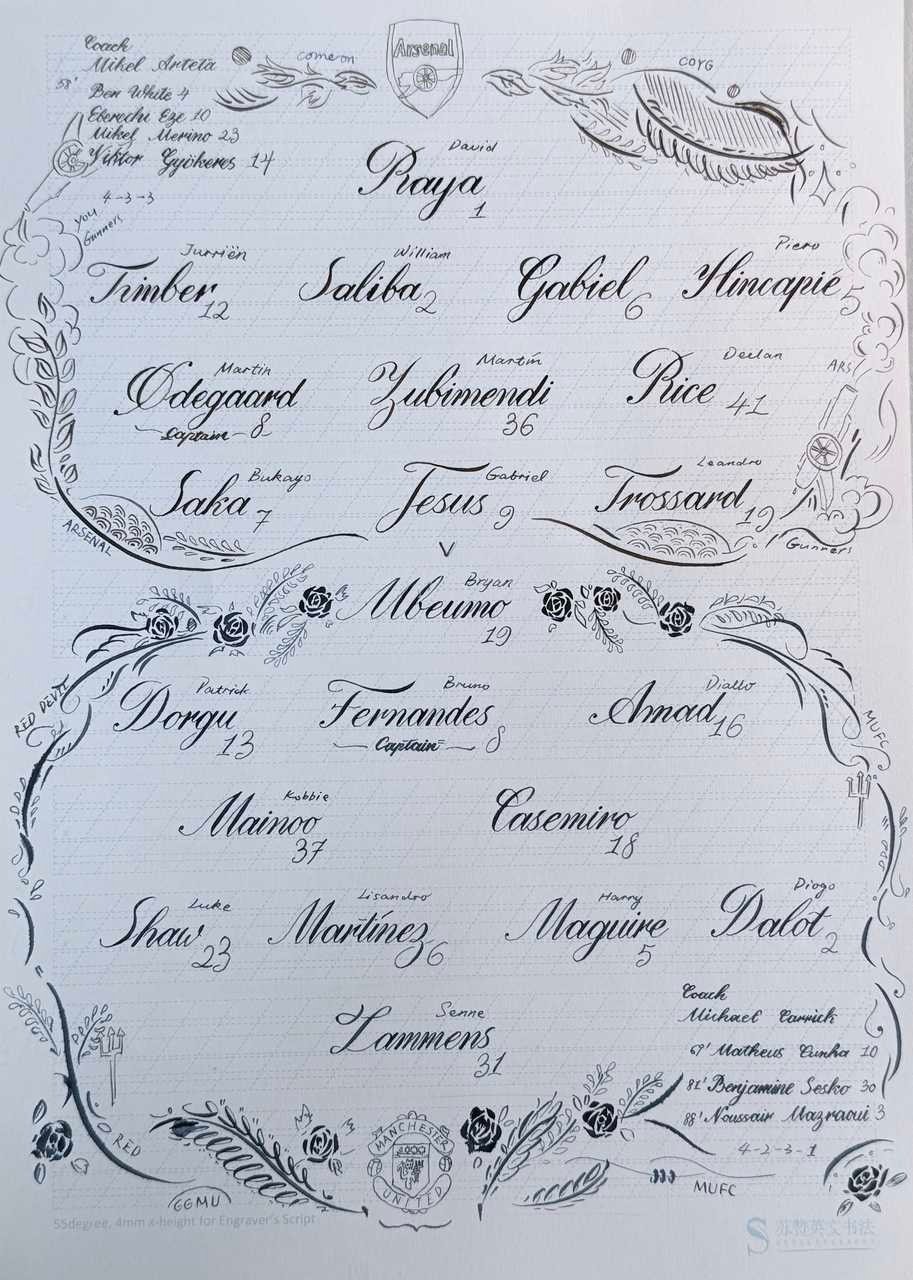 Coach
Mikel Arteta
58' Ben White 4
Eberechi Eze 10
Mikel Merino 23
Viktor Gyökeres 14
4-3-3
come on
Arsenal
COYG
you
Gunners
David
Raya
1
Jurriën William Piero
Timber 12 Saliba 2 Gabiel 6 Hincapié 5
Martin Martín Declan
Ødegaard Zubimendi Rice 41
Captain 8 36
ARS
Bukayo Gabriel Leandro
Saka 7 Jesus 9 Trossard 19
ARSENAL
Gunners
V
Bryan
Mbeumo
19
RED DEVIL
Patrick Bruno Diallo
Dorgu Fernandes Amad
13 Captain 8 16
MUFC
Kobbie
Mainoo Casemiro
37 18
Luke Lisandro Harry Diogo
Shaw Martínez Maguire Dalot
23 6 5 2
Senne
Lammens
31
Coach
Michael Carrick
67' Matheus Cunha 10
81' Benjamine Sesko 30
88' Noussair Mazraoui 3
4-2-3-1
RED
MANCHESTER
UNITED
GGMU
MUFC
55degree, 4mm x-height for Engraver's Script
苏赞英文书法